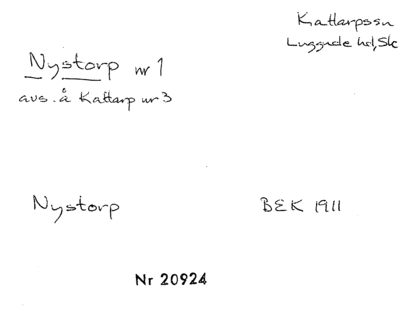 Kattarpssn
Luggude hd, Sk
Nystorp nr 1
avs. å Kattarp nr 3
Nystorp BEK 1911
Nr 20924